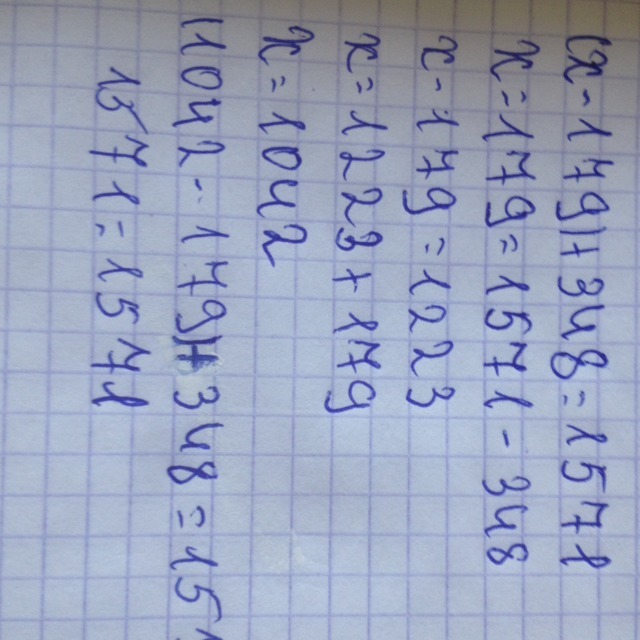 (x-179)+348=1571
x-179=1571-348
x-179=1223
x=1223+179
x=1042
(1042-179)+348=15
1571=1571